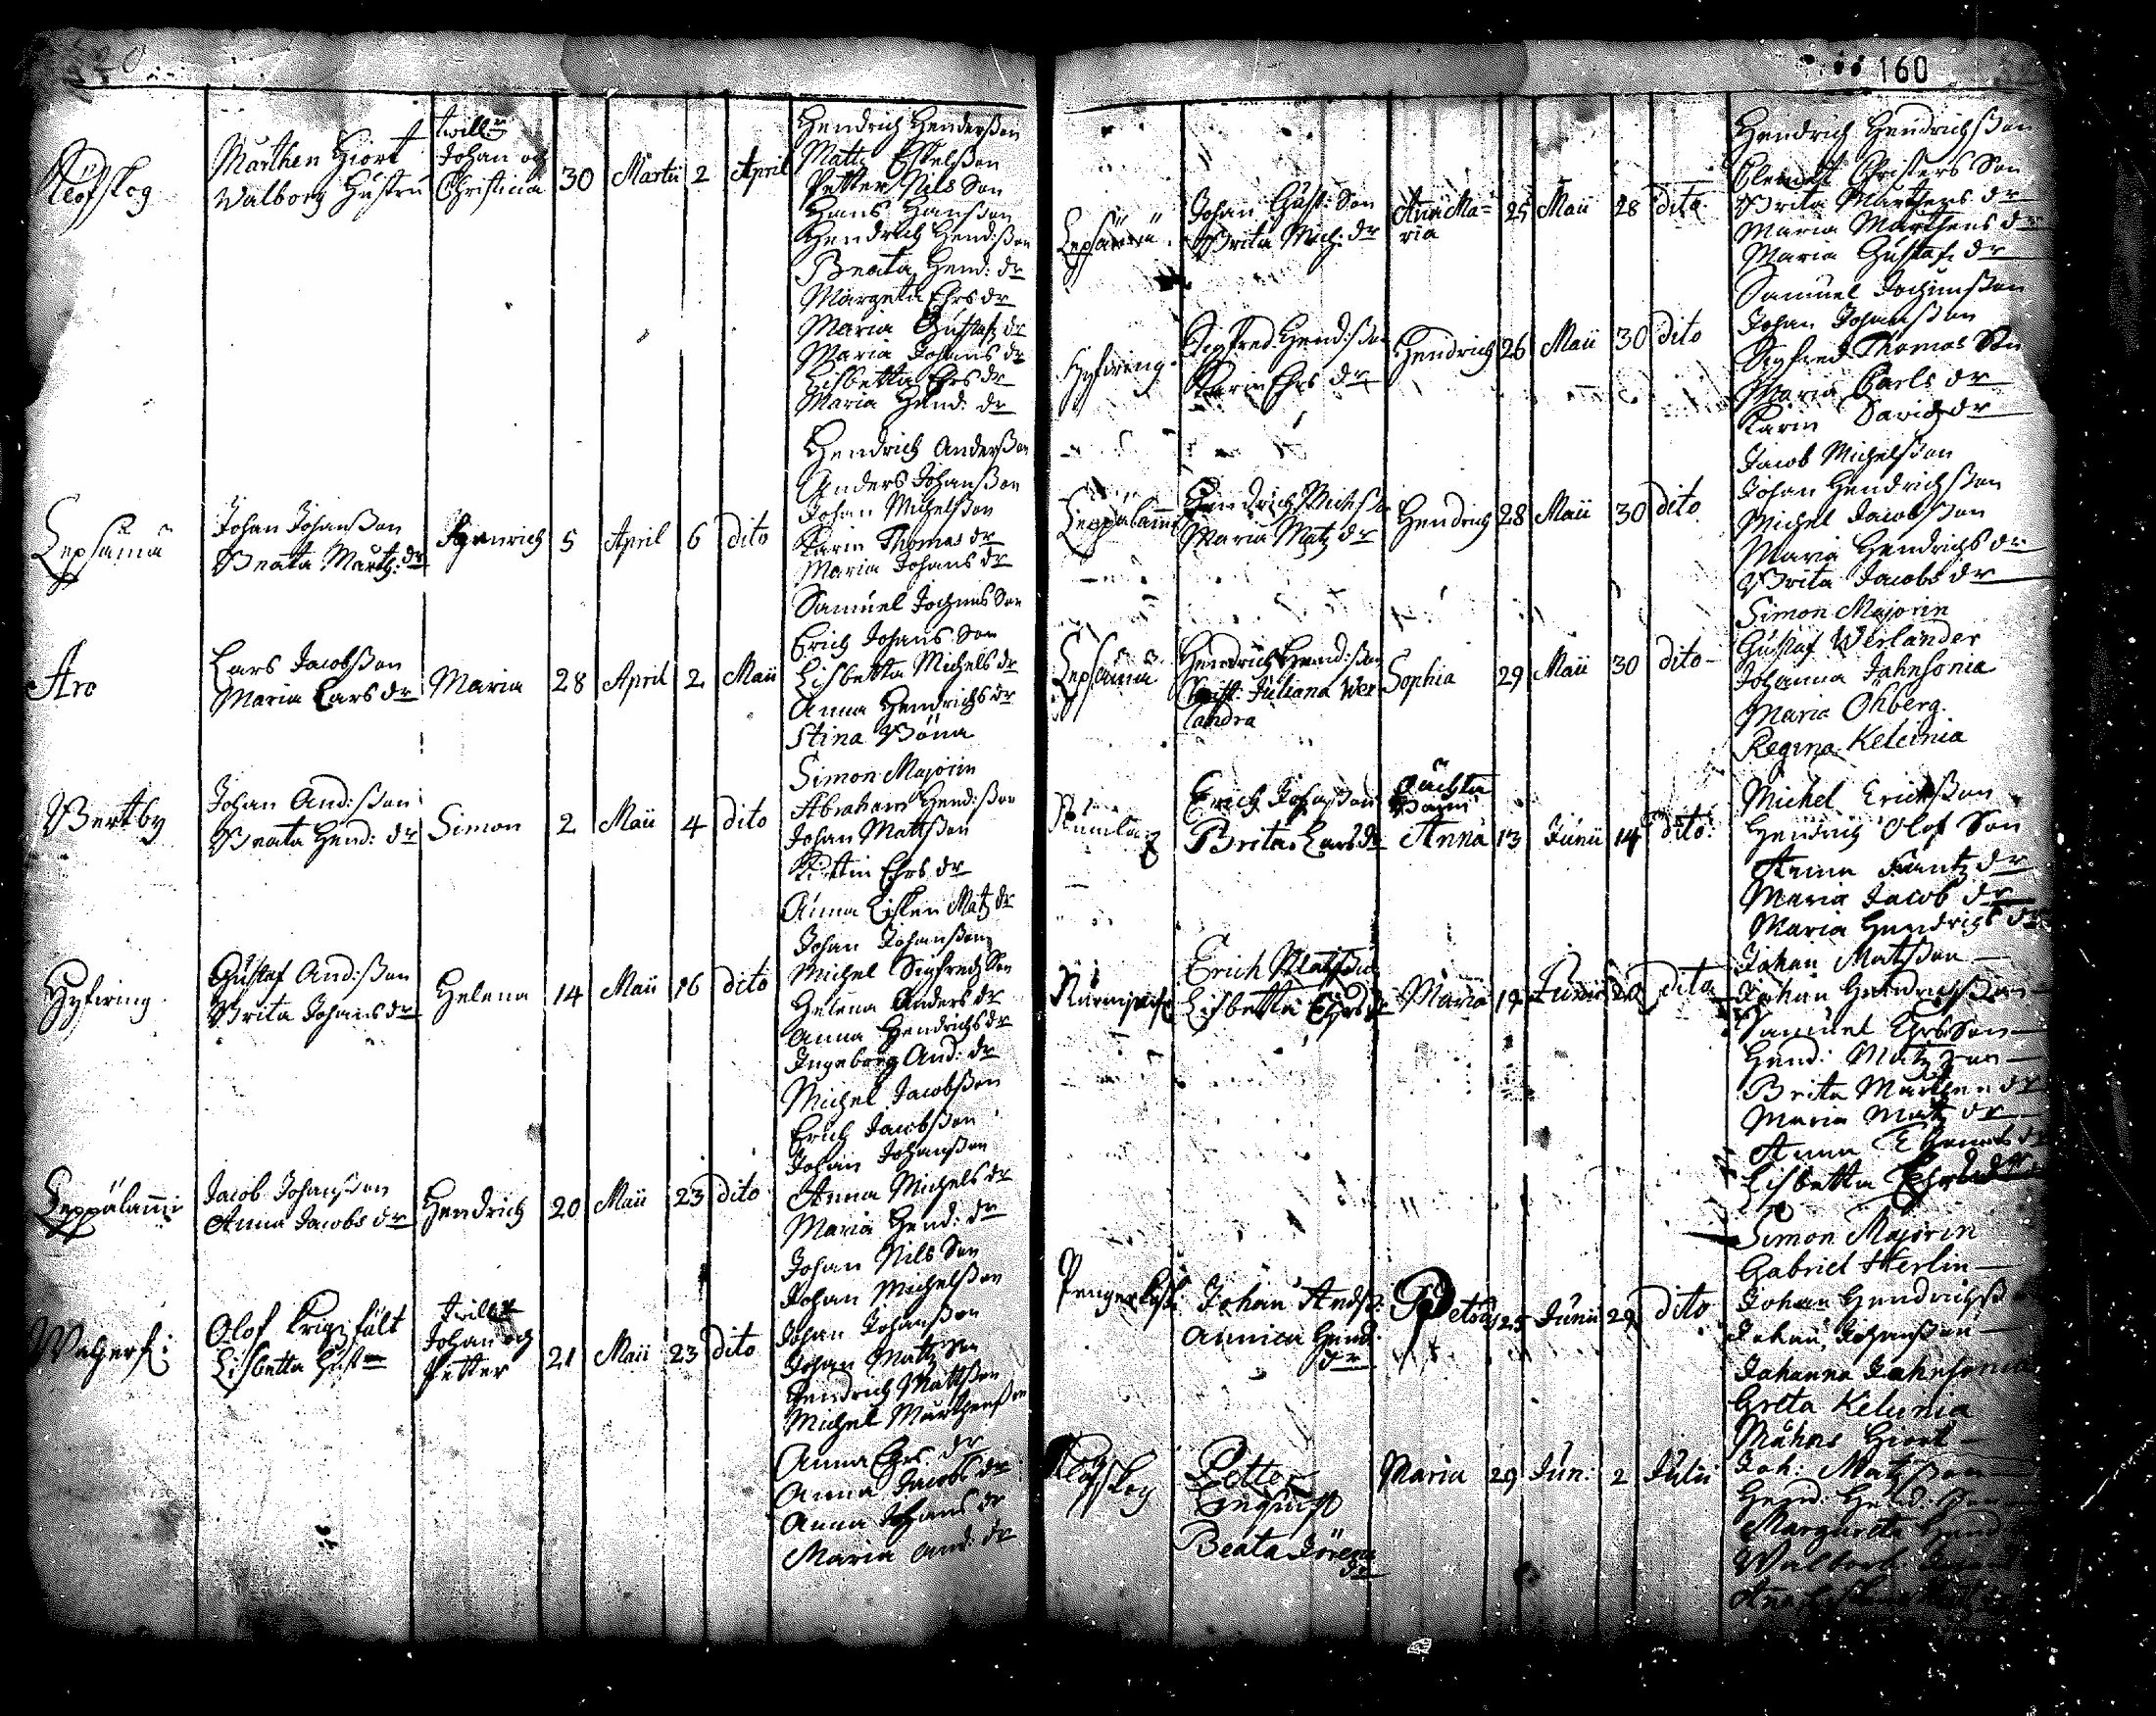 160
Twill:r
Röfskog
Marthen Hiort
Walborg Hustru
Johan och
Christina
30 Martii 2 April
Hendrich Hendersson
Matts Eskelsson
Petter Nils Son
Hans Hansson
Hendrich Hend:sson
Beata Hend: dr
Margeta Ehrs dr
Maria Gustafz dr
Maria Johans dr
Lisbetta Ehrs dr
Maria Hend: dr
Lepsämä
Johan Johansson
Beata Martz: dr
Henrich 5 April 6 dito
Hendrich Andersson
Anders Johansson
Johan Michelsson
Karin Thomas dr
Maria Johans dr
Aro
Lars Jacobsson
Maria Lars dr
Maria 28 April 2 Maii
Samuel Jochims Son
Erich Johans Son
Lisbetta Michels dr
Anna Hendrichs dr
Stina Böna
Wertby
Johan And:sson
Beata Hend: dr
Simon 2 Maii 4 dito
Simon Majorin
Abraham Hend:sson
Johan Mattsson
Kirstin Ehrs dr
Anna Lisken Matz dr
Hyfiring
Gustaf And:sson
Brita Johans dr
Helena 14 Maii 16 dito
Johan Johansson
Michel Sigfredz Son
Helena Anders dr
Anna Hendrichs dr
Ingeborg And: dr
Leppälammi
Jacob Johansson
Anna Jacobs dr
Hendrich 20 Maii 23 dito
Michel Jacobsson
Erich Jacobsson
Johan Johansson
Anna Michels dr
Maria Hend: dr
Olof
Lisbetta Hust
Twill:r
Johan och
Petter
21 Maii 23 dito
Johan Nils Son
Johan Michelsson
Johan Johansson
Johan Matz Son
Hendrich Mattsson
Michel Marthensson
Anna Ehrs dr
Anna Jacobs dr
Anna Johans dr
Maria And: dr
Lepsämä
Johan Gust: Son
Brita Mich: dr
Anna Ma=
ria
25 Maii 28 dito
Hendrich Hendrichsson
Clemet Christers Son
Brita Marthens dr
Maria Marthens dr
Maria Gustafz dr
Hyfiring
Sigfred Hend:sson
Karin Ehrs dr
Hendrich 26 Maii 30 dito
Samuel Jochimsson
Johan Johansson
Sigfred Thomas Son
Maria Carls dr
Karin Davidz dr
Leppälammi
Hendrich Michsson
Maria Matz dr
Hendrich 28 Maii 30 dito
Jacob Michelsson
Johan Hendrichsson
Michel Jacobsson
Maria Hendrichs dr
Brita Jacobs dr
Lepsämä
Hendrich Hend:sson
Juliana Wer
landra
Sophia 29 Maii 30 dito
Simon Majorin
Gustaf Werlander
Johanna Jahnsonia
Maria Öhberg.
Regina Keleinia
Numla
Erich Johansson
Brita Lars dr
oächta
Barn
Anna 13 Junii 14 dito
Michel Ericksson
Hendrich Olof Son
Anna Frantz dr
Maria Jacob dr
Maria Hendrichs dr
Erich Matsson
Lisbetta Ehrs dr
Maria 19 Junii 20 dito
Johan Matsson
Johan Hendrichsson
Samuel Ehrs Son
Hend: Matz son
Brita Marthen dr
Maria Matz dr
Anna
Lisbetta
Johan Ands:
Annica Hend:
dr
Petrus 25 Junii 29 dito
Simon Majorin
Gabriel Herlin
Johan Hendrichss
Johan Johansson
Johanna Jahnsonia
Greta Keleinia
Röfskog
Petter
Beata Jörens
dr
Maria 29 Jun: 2 Julii
Måhns Hiort
Joh: Matzson
Hend: Hend: Son
Margareta Hend